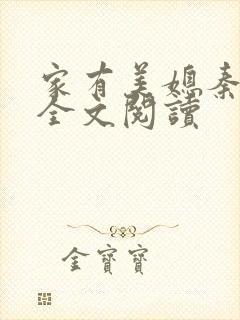 家有美媳秦
全文閱讀
金寶寶